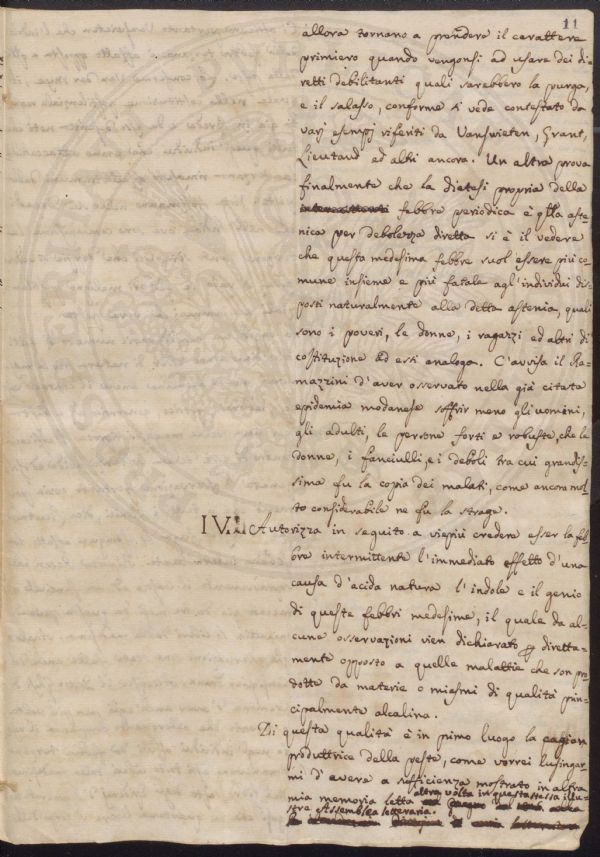 11
allora tornano a prendere il carattere
primiero quando vengonsi ad usare dei di-
retti debilitanti quali sarebbero la purga,
e il salasso, conforme si vede contestato da
varj esempj riferiti da Vanswieten, Grant,
Lieutaud ed altri ancora. Un altra prova
finalmente che la diatesi propria della
febbre periodica è qlla aste-
nica per debolezza diretta si è il vedere
che questa medesima febbre suol essere più co-
mune insieme e più fatale agl'individui dis-
posti naturalmente alla detta astenia, quali
sono i poveri, le donne, i ragazzi ed altri di
costituzione ad essi analoga. C'avvisa il Ra-
mazzini d'aver osservato nella già citata
epidemia modanese soffrir meno gli uomini,
gli adulti, le persone forti e robuste, che le
donne, i fanciulli, e i deboli tra cui grandis-
sima fu la copia dei malati, come ancora mol-
to considerabile ne fu la strage.
IV. Autorizza in seguito a viepiù credere esser la feb-
bre intermittente l'immediato effetto d'una
causa d'acida natura l'indole e il genio
di queste febbri medesime, il quale da al-
cune osservazioni vien dichiarato diretta-
mente opposto a quelle malattie che son pro-
dotte da materie o miasmi di qualità prin-
cipalmente alcalina.
Di questa qualità è in pimo luogo la cagion
produttrice della peste, come vorrei lusingar-
mi d'avere a sofficienza mostrato in altra
mia memoria letta altra volta in questa stessa illu-
stre Assemblea letteraria.